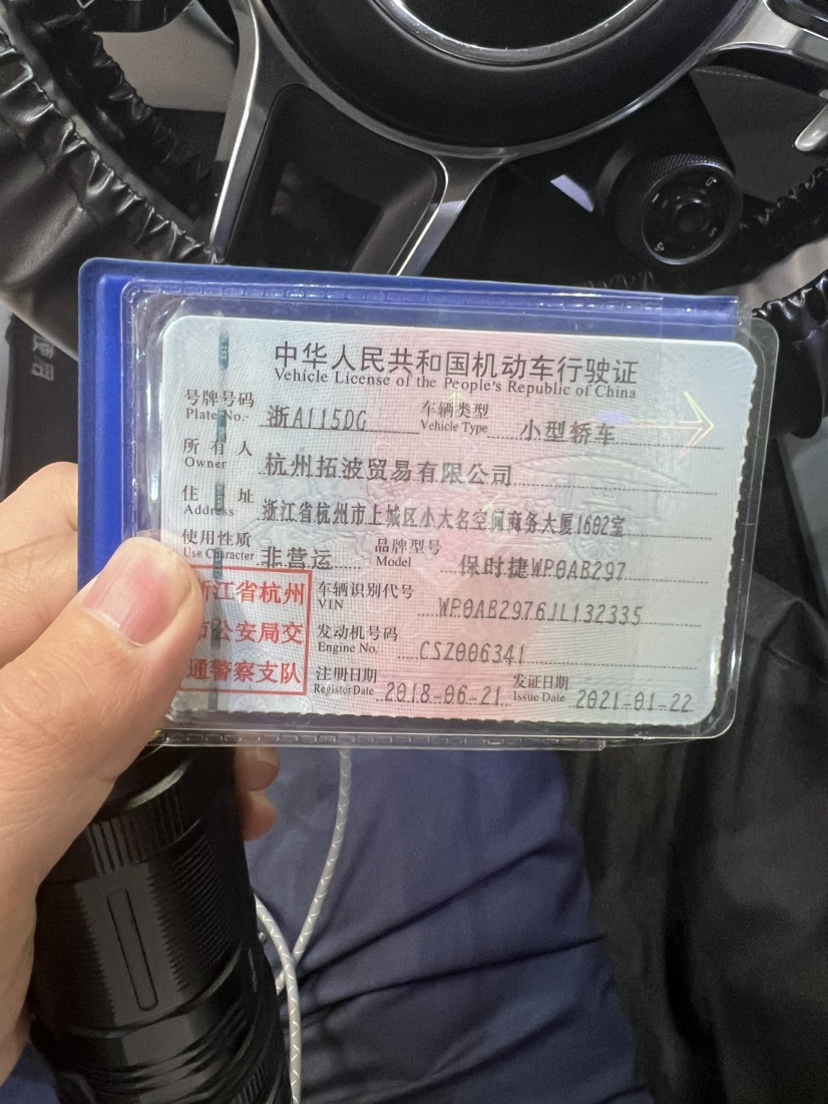 中华人民共和国机动车行驶证
Vehicle License of the People's Republic of China
号牌号码 浙A115DG 车辆类型 小型轿车
Plate No. Vehicle Type
所有人 杭州拓波贸易有限公司
Owner
住址 浙江省杭州市上城区小大名空间商务大厦1602室
Address
使用性质 非营运 品牌型号 保时捷WP0AB297
Use Character Model
浙江省杭州 车辆识别代号 WP0AB2976JL132335
VIN
市公安局交 发动机号码 CSZ006341
Engine No.
通警察支队 注册日期 2018-06-21 发证日期 2021-01-22
Register Date Issue Date